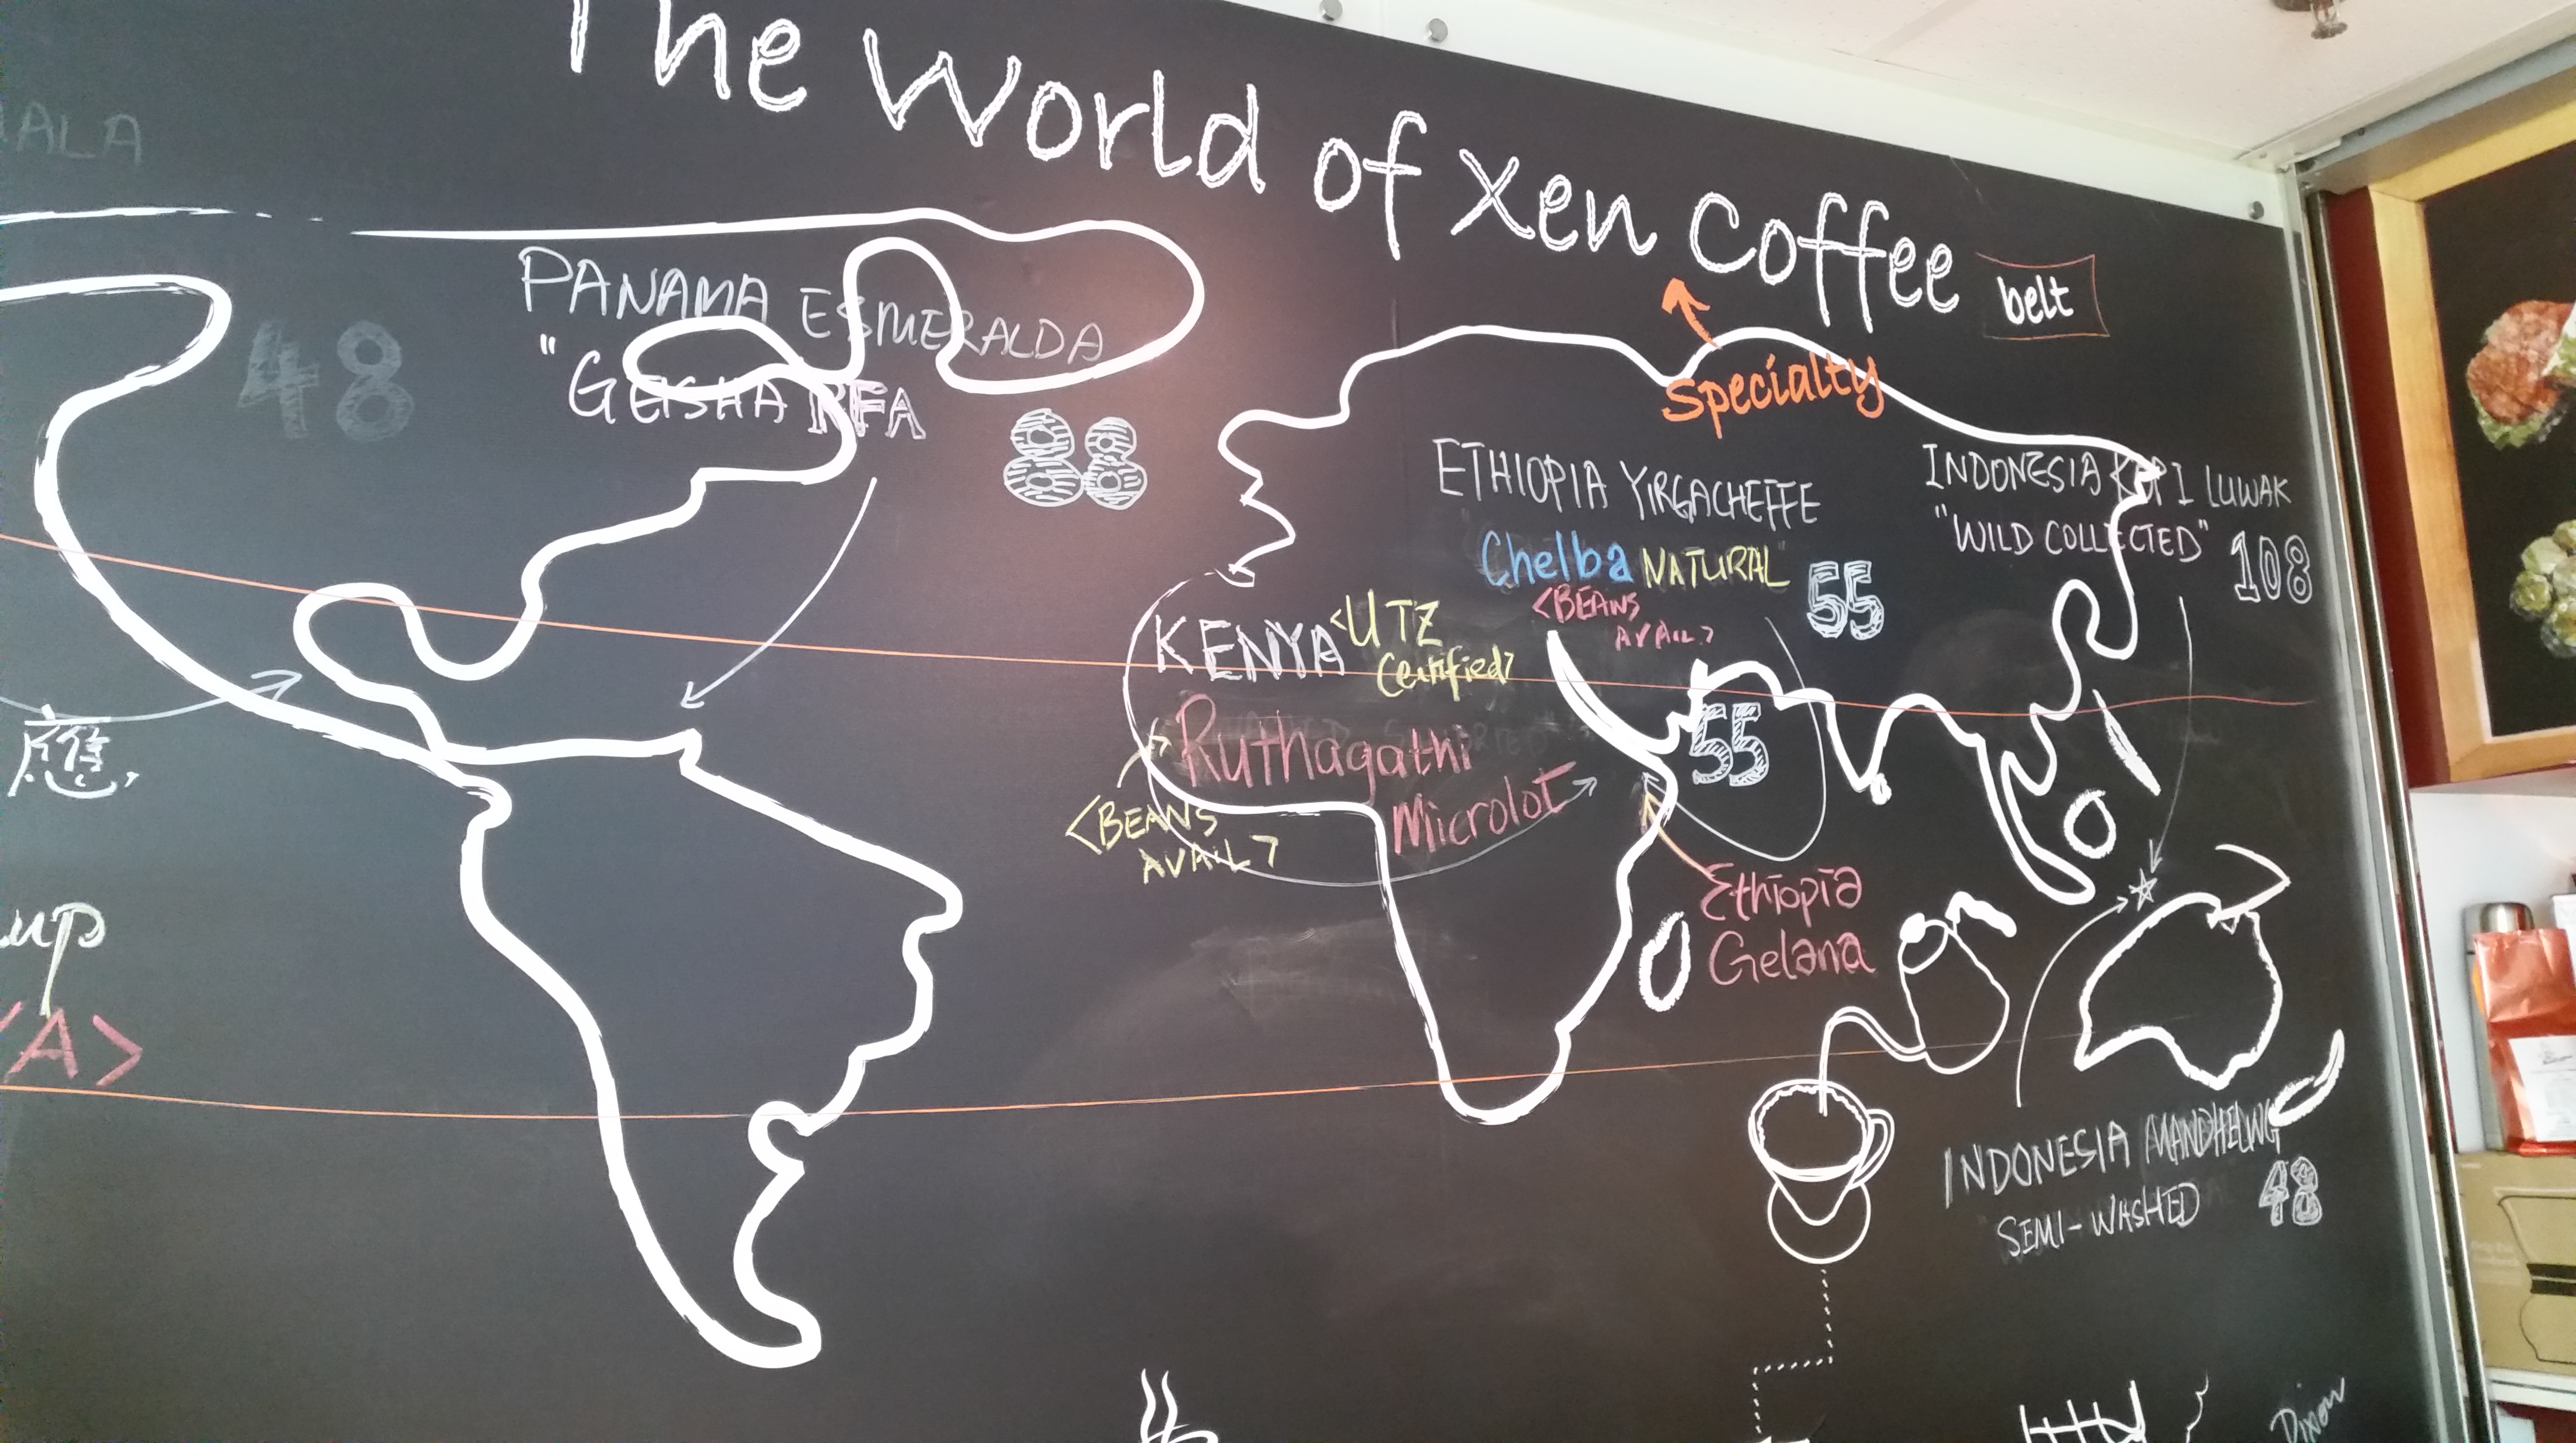 The World of Xen Coffee
belt
Specialty
ALA
48
PANAMA ESMERALDA
"GEISHA RFA
88
ETHIOPIA YIRGACHEFFE
"Chelba NATURAL"
<BEANS
AVAIL>
55
INDONESIA KOPI LUWAK
"WILD COLLECTED"
108
KENYA <UTZ
Certified>
Ruthagathi
Microlot
55
<BEANS
AVAIL>
Ethiopia
Gelana
應
up
<A>
INDONESIA MANDHELING
SEMI-WASHED
48
Dixon